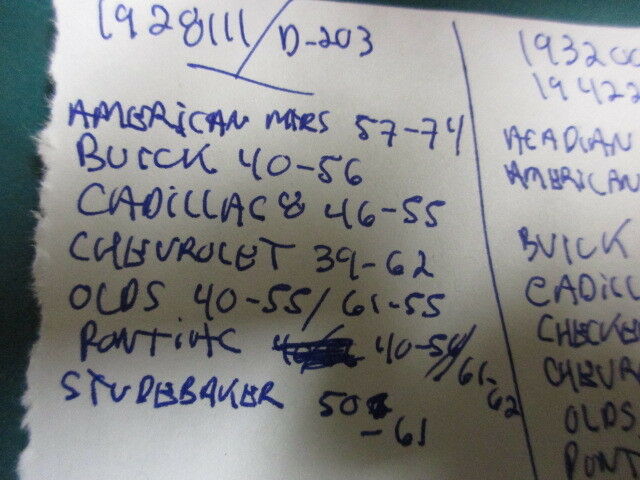 1928111/D-203
AMERICAN MTRS 57-74
BUICK 40-56
CADILLAC 46-55
CHEVROLET 39-62
OLDS 40-55/61-55
PONTIAC 40-54/61-62
STUDEBAKER 50-61
193200
19422
ACADIAN
AMERICAN
BUICK
CADILL
CHECKE
CHEVR
OLDS
PONT